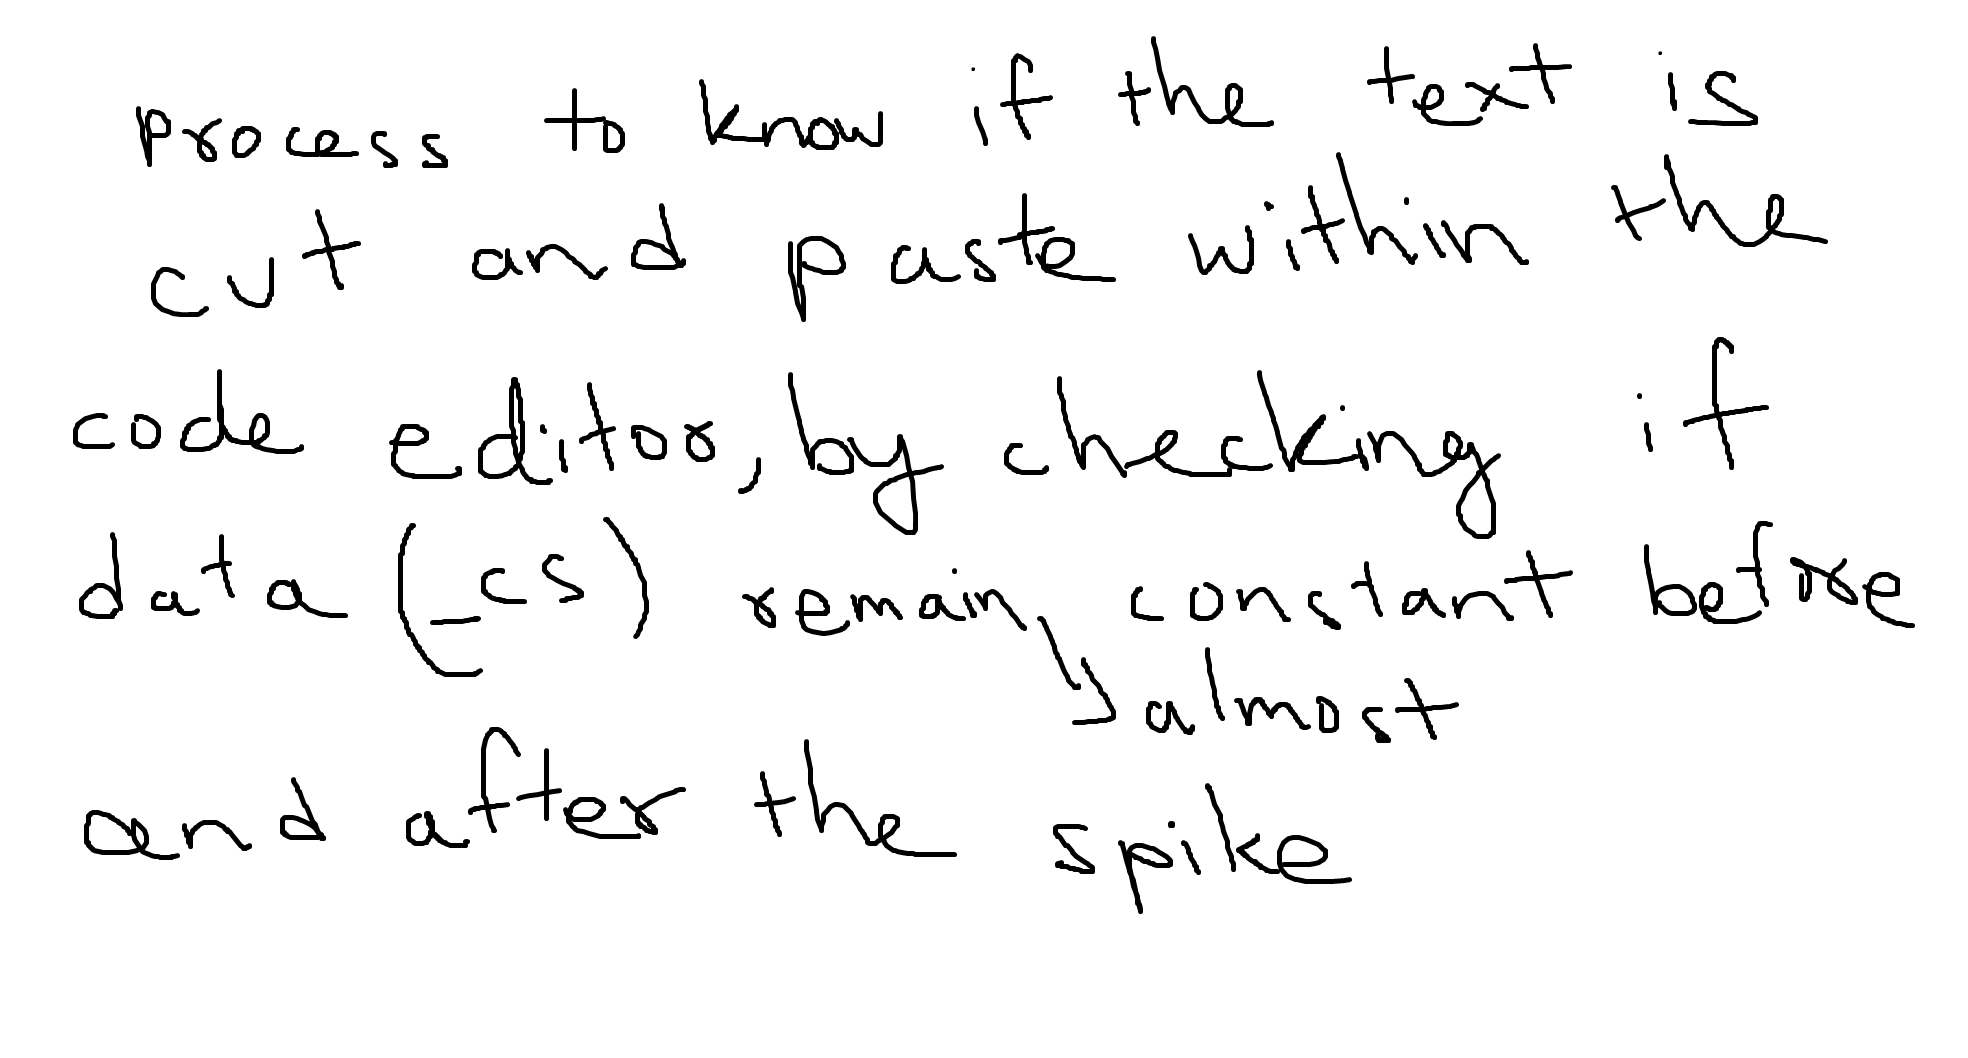 process to know if the text is
cut and paste within the
code editor, by checking if
data (_cs) remain constant before
almost
and after the spike